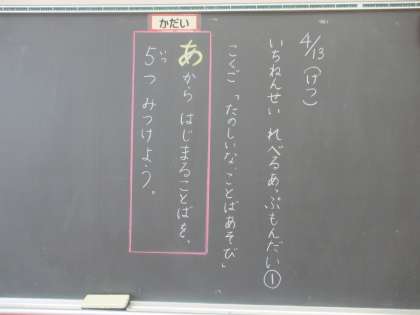 4/13(げつ)
いちねんせい れべるあっぷもんだい①
こくご「たのしいな、ことばあそび」
かだい
あから はじまることばを、
5つ みつけよう。
いつ